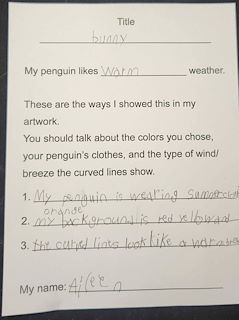 Title
bunny
My penguin likes warm weather.
These are the ways I showed this in my
artwork.
You should talk about the colors you chose,
your penguin's clothes, and the type of wind/
breeze the curved lines show.
1. My penguin is wearing summer
orange
2. my background is red yellow and
3. the curved lines look like a
My name: Aileen